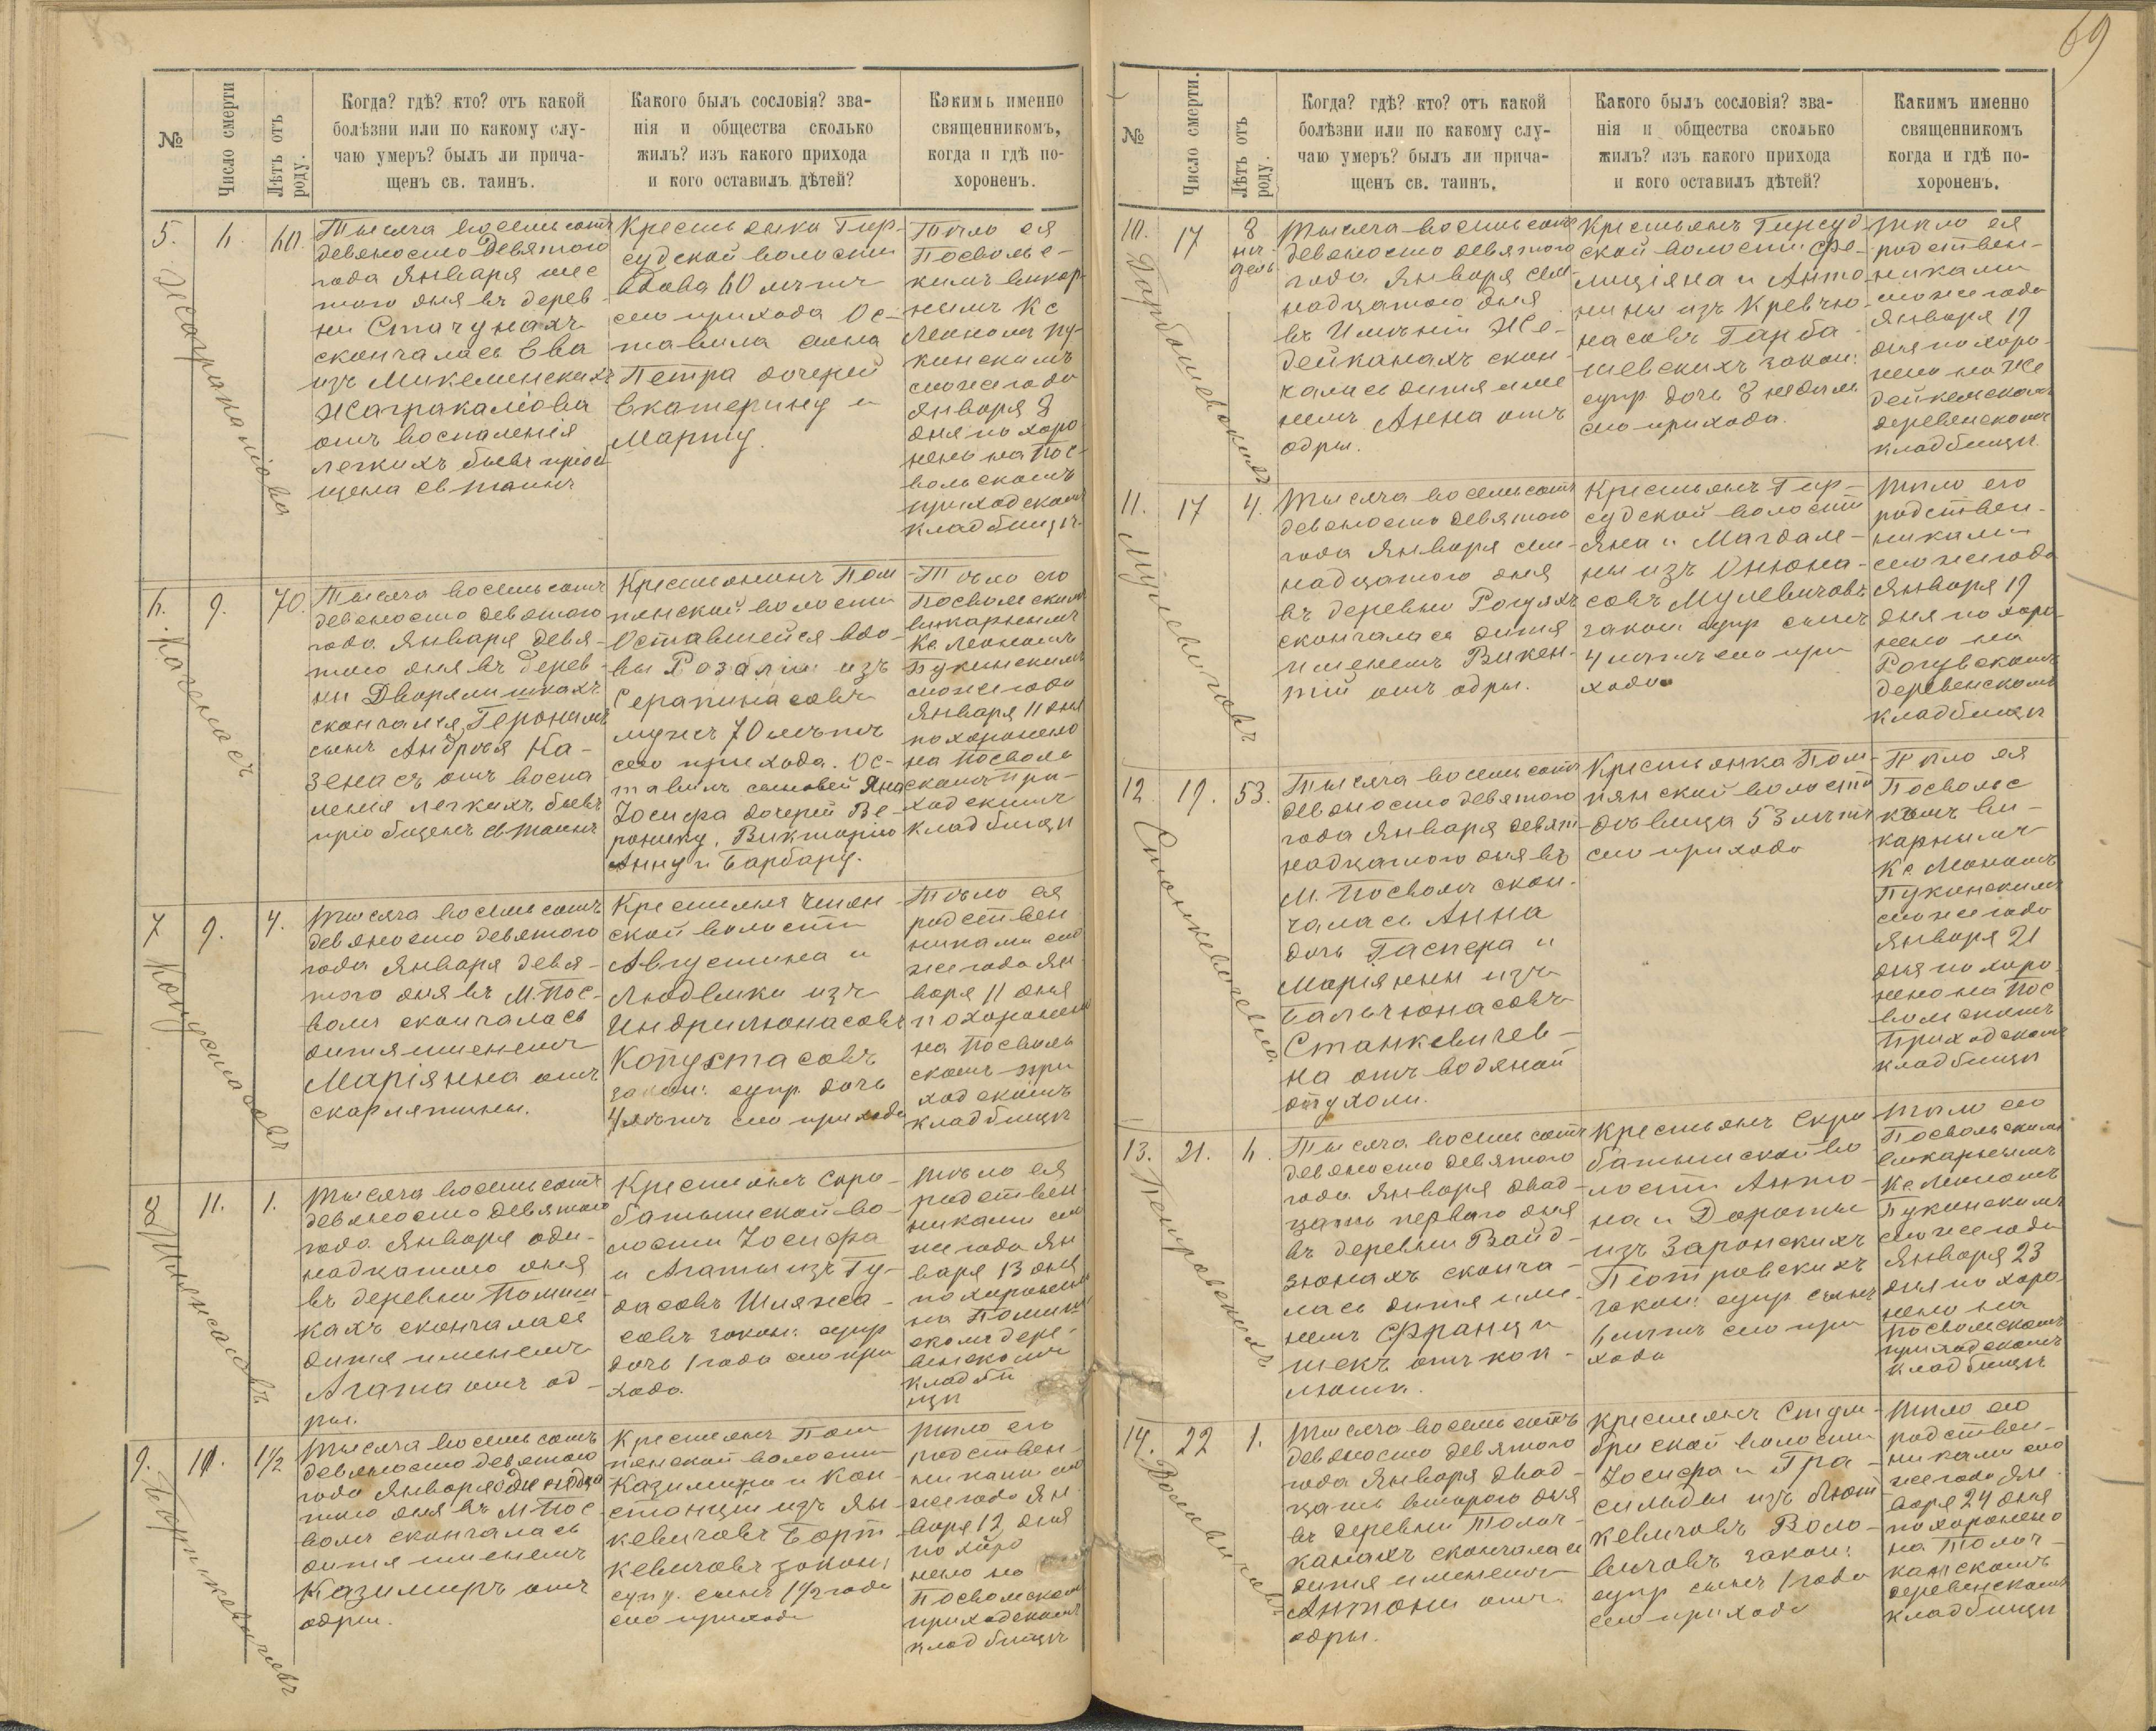 69
№
Число смерти
Лѣтъ отъ роду.
Когда? гдѣ? кто? отъ какой
болѣзни или по какому слу-
чаю умеръ? былъ ли прича-
щенъ св. таинъ.
Какого былъ сословія? зва-
нія и общества сколько
жилъ? изъ какого прихода
и кого оставилъ дѣтей?
Какимъ именно
священникомъ,
когда и гдѣ по-
хороненъ.
5.
6.
60.
Тысяча восемьсотъ
девяносто девятого
года Января шес
того дня въ дерев-
ни Стачунахъ
скончалась Ева
изъ Микелинскихъ
Жагракаліова
отъ воспаленія
легкихъ бывъ пріоб
щена св таинъ
Крестьянка Гир-
судской волости
вдова 60 лѣтъ
сего прихода Ос-
тавила сына
Петра дочерей
Екатерину и
Марту.
Тѣло ея
Посвольс-
кимъ викар-
нымъ Кс
Леономъ Пу-
кинскимъ
сего же года
Января 8
дня похоро
нено на Пос-
вольскомъ
приходскомъ
кладбищѣ.
6.
9.
70.
Тысяча восемьсотъ
девяносто девятого
года Января девя-
того дня въ дерев-
ни Дворялишкахъ
скончался Геронимъ
сынъ Андрея Ка-
зенасъ отъ воспа
ленія легкихъ бывъ
пріобщенъ св таинъ
Крестьянинъ Пом
пянской волости
Оставшейся вдо-
вы Розаліи изъ
Серапинасовъ
мужъ 70 лѣтъ
сего прихода. Ос-
тавилъ сыновей Яна
Іосифа дочерей Ве-
ронику, Викторію
Анну и Барбару.
Тѣло его
Посвольскимъ
викарнымъ
Кс. Леономъ
Пукинскимъ
сего же года
Января 11 дня
похоронено
на Посволь
скомъ при-
ходскимъ
кладбищѣ
7
9.
4.
Копустасовъ
Тысяча восемьсотъ
девяносто девятого
года Января девя-
того дня въ М. Пос-
волѣ скончалась
дитя именемъ
Маріянна отъ
скарлятины.
ской волости
Августина и
Людвики изъ
Индрилюнасовъ
Копустасовъ
закон: супр. дочь
4 лѣтъ сего прихода
Тѣло ея
родствен
никами сего
же года Ян
варя 11 дня
похоронено
на Посволь
скомъ при
ходскомъ
кладбищѣ
8
11.
1.
Шляжасовъ
Тысяча восемьсотъ
девяносто девятого
года Января оди-
надцатого дня
въ деревни Помиш
кахъ скончалась
дитя именемъ
Агата отъ од-
ры.
Крестьянъ Скро-
батышской во-
лости Іосифа
и Агаты изъ Гу-
дасовъ Шляжа-
совъ закон: супр
дочь 1 года сего при
хода.
Тѣло ея
родствен
никами сего
же года Ян
варя 13 дня
похоронено
скомъ дере-
венскомъ
кладби
щѣ
9.
11.
1½
Борткевичовъ
Тысяча восемьсотъ
девяносто девятого
года Января одиннадца
того дня въ М. Пос
волѣ скончалась
дитя именемъ
Казимиръ отъ
одры.
Крестьянъ Пом
пянской волости
Казимира и Кон-
станціи изъ Ян-
кевичовъ Борт
кевичовъ закон:
супр. сынъ 1½ года
сего прихода
Тѣло его
родствен-
никами сего
же года Ян
варя 12 дня
похоро
нено на
Посвольском
приходскомъ
кладбищѣ
№
Число смерти.
Лѣтъ отъ роду.
Когда? гдѣ? кто? отъ какой
болѣзни или по какому слу-
чаю умеръ? былъ ли прича-
щенъ св. таинъ.
Какого былъ сословія? зва-
нія и общества сколько
жилъ? изъ какого прихода
и кого оставилъ дѣтей?
Какимъ именно
священникомъ
когда и гдѣ по-
хороненъ.
10.
17
8
не-
дель
Гарбашевскихъ
Тысяча восемьсотъ
девяносто девятого
года Января сем-
надцатого дня
въ Имѣніи Же-
дейканахъ скон-
чалась дитя име
немъ Анна отъ
одры.
Крестьянъ Гирсуд
ской волости Фе-
лиціяна и Анто-
нины изъ Кревчю
насовъ Гарба
шевскихъ закон:
супр. дочь 8 недель
сего прихода.
Тѣло ея
родствен-
никами
сего же года
Января 19
дня похоро-
нено на Же
дейкемскомъ
деревенскомъ
кладбищѣ
11.
17
4.
Мулевичовъ
Тысяча восемьсотъ
девяносто девятого
года Января сем-
надцатого дня
въ деревни Рогуляхъ
скончалась дитя
именемъ Викен-
тій отъ одры.
Крестьянъ Гир-
судской волости
Яна и Магдале-
ны изъ Онюна-
совъ Мулевичовъ
закон супр сынъ
4 лѣтъ сего при
хода
Тѣло его
родствен-
никами
сего же года
Января 19
дня похоро
нено на
деревенскомъ
кладбищѣ
12
19.
53.
Станкевичевна
Тысяча восемьсотъ
девяносто девятого
года Января девят-
надцатого дня въ
М. Посволѣ скон-
чалась Анна
дочь Гаспера и
Маріянны изъ
Бальчюнасовъ
Станкевичев-
на отъ водяной
опухоли.
Крестьянка Пом-
пянской волости
дѣвица 53 лѣтъ
сего прихода
Тѣло ея
Посвольс
комъ ви-
карнымъ
Кс Леономъ
Пукинскимъ
сего же года
Января 21
дня похоро
нено на Пос
вольскомъ
Приходскомъ
кладбищѣ
13.
21.
6.
Петровскихъ
Тысяча восемьсотъ
девяносто девятого
года Января двад-
цать перваго дня
въ деревни Вайд-
зюнахъ сконча-
лась дитя име-
немъ Францы
шекъ отъ кок-
люша.
Крестьянъ Скро
батышской во
лости Анто-
на и Дороты
изъ Заронскихъ
Піотровскихъ
закон: супр сынъ
6 лѣтъ сего при
хода
Тѣло его
Посвольскимъ
викарнымъ
Кс Леономъ
Пукинскимъ
сего же года
Января 23
дня похоро-
нено на
Посвольскомъ
приходскомъ
кладбищѣ
14.
22
1.
Воловичовъ
Тысяча восемьсотъ
девяносто девятого
года Января двад-
цать второго дня
въ деревни Толоч-
канахъ скончалась
дитя именемъ
Антони отъ
одры.
Іосифа и Гра-
сильды изъ Бют
кевичовъ Воло-
вичовъ закон:
супр сынъ 1 года
сего прихода
Тѣло его
родствен-
никами сего
же года Ян
варя 24 дня
похоронено
на Толоч-
канскомъ
деревенскомъ
кладбищѣ